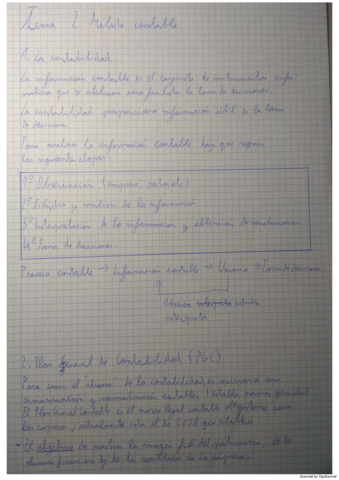 Tema 2 Método contable
1. La contabilidad.
La información contable es el conjunto de instrumentos infor-
mativos que se utilizan para facilitar la toma de decisiones.
La contabilidad proporciona información útil a la toma
de decisiones
Para analizar la información contable hay que seguir
las siguientes etapas:
1º Observacion (empresa, sector etc)
2º Estudio y analisis de la información
3º Interpretacion de la informacion y obtención de conclusiones
4º Toma de decisiones.
Proceso contable → Información contable → Usuario → Toma de decisiones
interpreta
2. Plan General de Contabilidad (PGC)
Para crear el "idioma" de la contabilidad, es necesario una
normalización contable. (establece normas generales)
El Plan General Contable es el marco legal contable obligatorio para
las empresas, actualmente esta el de 2008 que establece
- El objetivo de mostrar la imagen fiel del patrimonio, de la
situacion financiera y de los resultados de la empresa.
Scanned by TapScanner